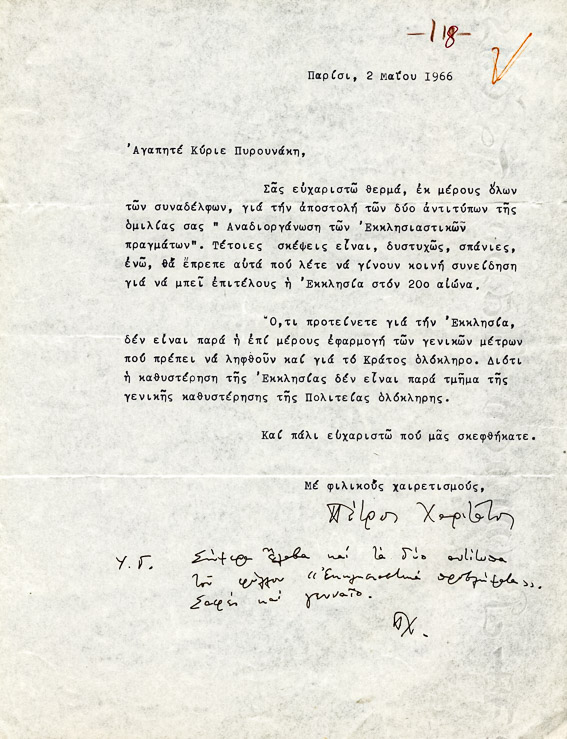 —118—
Παρίσι, 2 Μαΐου 1966
Ἀγαπητέ Κύριε Πυρουνάκη,
Σᾶς εὐχαριστῶ θερμά, ἐκ μέρους ὅλων
τῶν συναδέλφων, γιά τήν ἀποστολή τῶν δύο ἀντιτύπων τῆς
ὁμιλίας σας " Ἀναδιοργάνωση τῶν Ἐκκλησιαστικῶν
πραγμάτων". Τέτοιες σκέψεις εἶναι, δυστυχῶς, σπάνιες,
ἐνῶ, θά ἔπρεπε αὐτά πού λέτε νά γίνουν κοινή συνείδηση
γιά νά μπεῖ ἐπιτέλους ἡ Ἐκκλησία στόν 20ο αἰώνα.
Ὅ,τι προτείνετε γιά τήν Ἐκκλησία,
δέν εἶναι παρά ἡ ἐπί μέρους ἐφαρμογή τῶν γενικῶν μέτρων
πού πρέπει νά ληφθοῦν καί γιά τό Κράτος ὁλόκληρο. Διότι
ἡ καθυστέρηση τῆς Ἐκκλησίας δέν εἶναι παρά τμῆμα τῆς
γενικῆς καθυστέρησης τῆς Πολιτείας ὁλόκληρης.
Καί πάλι εὐχαριστῶ πού μᾶς σκεφθήκατε.
Μέ φιλικούς χαιρετισμούς,
Πέτρος Χαριτάτος
Υ.Γ. Σήμερα ἔλαβα καί τά δύο ἀντίτυπα
τοῦ φύλλου «Ἐκκλησιαστικά προβλήματα».
Σαφές καί γενναῖο.
ΠΧ.